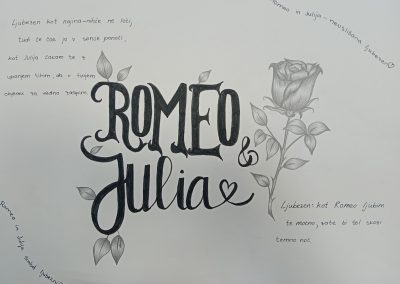 Ljubezen kot najina nihče ne loči,
tudi če čas je v sence ponoči,
kot Julija čakam te z
upanjem tihim, da v tvojem
objemu za vedno zaspim.
Romeo in Julija - neuslišana ljubezen
ROMEO
&
Julia
Ljubezen: kot Romeo ljubim
te močno, zate bi šel skozi
temno noč.
Romeo in Julija